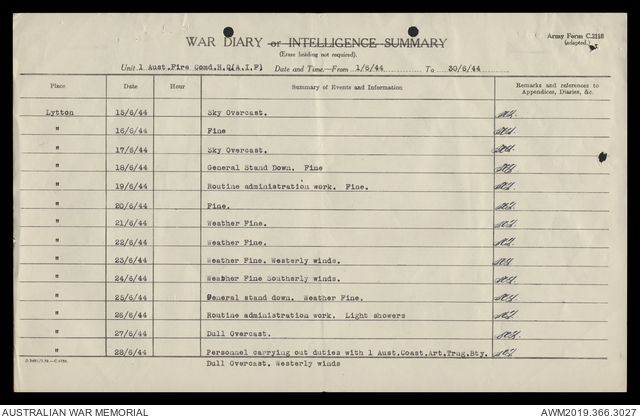 WAR DIARY or INTELLIGENCE SUMMARY
(Erase heading not required).
Army Form C.2118
(adapted.)
Unit 1 Aust.Fire Comd.H.Q(A.I.F) Date and Time—From 1/6/44 To 30/6/44
Place Date Hour Summary of Events and Information Remarks and references to Appendices, Diaries, &c.
Lytton 15/6/44 Sky Overcast.
" 16/6/44 Fine
" 17/6/44 Sky Overcast.
" 18/6/44 General Stand Down. Fine
" 19/6/44 Routine administration work. Fine.
" 20/6/44 Fine.
" 21/6/44 Weather Fine.
" 22/6/44 Weather Fine.
" 23/6/44 Weather Fine. Westerly winds.
" 24/6/44 Weather Fine Southerly winds.
" 25/6/44 General stand down. Weather Fine.
" 26/6/44 Routine administration work. Light showers
" 27/6/44 Dull Overcast.
" 28/6/44 Personnel carrying out duties with 1 Aust.Coast.Art.Trng.Bty.
Dull Overcast. Westerly winds
AUSTRALIAN WAR MEMORIAL
AWM2019.366.3027